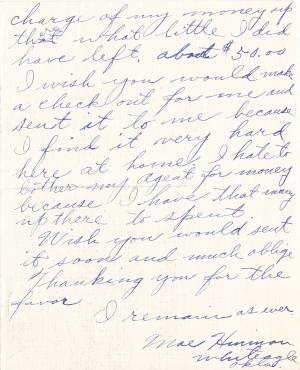 charge of my money up
there what little I did
have left. about $50.00
I wish you would make
a check out for me and
sent it to me because
I find it very hard
here at home, I hate to
bother my agent for money
because I have that money
up there to spent.
Wish you would sent
it soon and much oblige
Thanking you for the
favor
I remain as ever
Mae Hinman
Whiteagle
Okla.